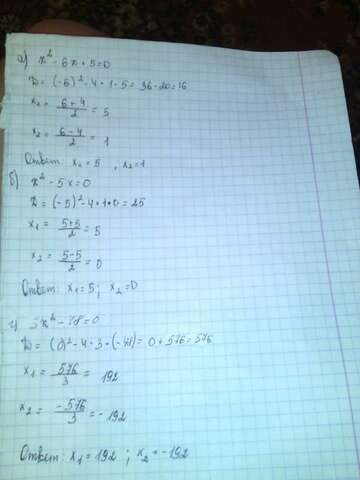 а) x² - 6x + 5 = 0
D = (-6)² - 4 · 1 · 5 = 36 - 20 = 16
x₁ = (6+4)/2 = 5
x₂ = (6-4)/2 = 1
Ответ: x₁ = 5 , x₂ = 1
б) x² - 5x = 0
D = (-5)² - 4 · 1 · 0 = 25
x₁ = (5+5)/2 = 5
x₂ = (5-5)/2 = 0
Ответ: x₁ = 5; x₂ = 0
3x² - 48 = 0
D = (0)² - 4 · 3 · (-48) = 0 + 576 = 576
x₁ = 576/3 = 192
x₂ = -576/3 = -192
Ответ: x₁ = 192 ; x₂ = -192